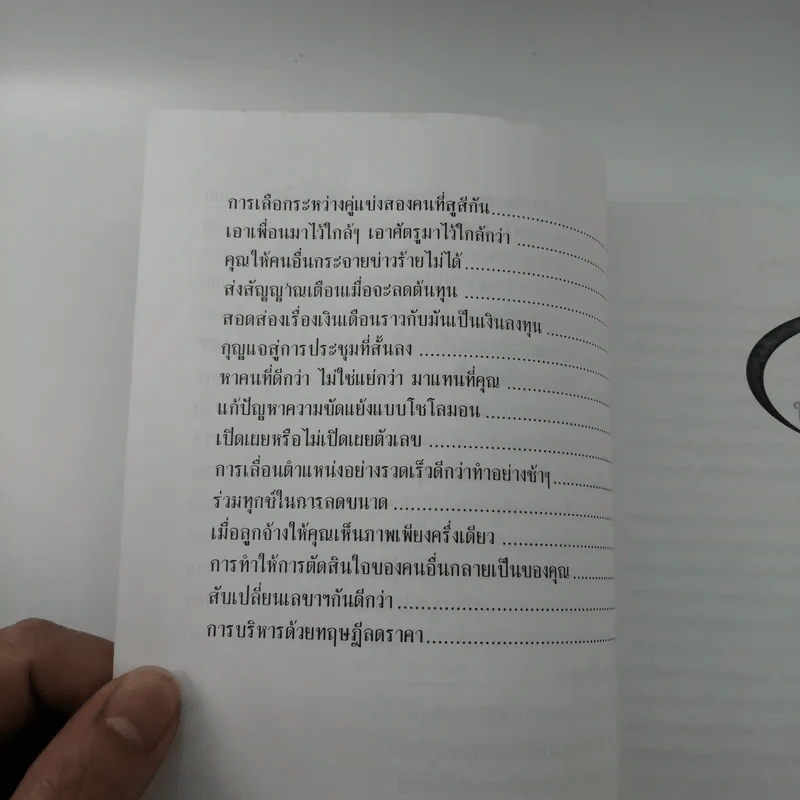 การเลือกระหว่างคู่แข่งสองคนที่สูสีกัน
เอาเพื่อนมาไว้ใกล้ๆ เอาศัตรูมาไว้ใกล้กว่า
คุณให้คนอื่นกระจายข่าวร้ายไม่ได้
ส่งสัญญาณเตือนเมื่อจะลดต้นทุน
สอดส่องเรื่องเงินเดือนราวกับมันเป็นเงินลงทุน
กุญแจสู่การประชุมที่สั้นลง
หาคนที่ดีกว่า ไม่ใช่แย่กว่า มาแทนที่คุณ
แก้ปัญหาความขัดแย้งแบบโซโลมอน
เปิดเผยหรือไม่เปิดเผยตัวเลข
การเลื่อนตำแหน่งอย่างรวดเร็วดีกว่าทำอย่างช้าๆ
ร่วมทุกข์ในการลดขนาด
เมื่อลูกจ้างให้คุณเห็นภาพเพียงครึ่งเดียว
การทำให้การตัดสินใจของคนอื่นกลายเป็นของคุณ
สับเปลี่ยนเลขาฯกันดีกว่า
การบริหารด้วยทฤษฎีลดราคา